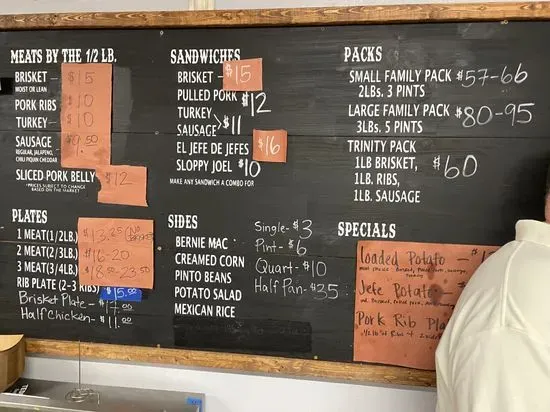 MEATS BY THE 1/2 LB.
BRISKET - $15
MOIST OR LEAN
PORK RIBS $10
TURKEY - $10
SAUSAGE $9.50
REGULAR, JALAPENO,
CHILI PIQUIN CHEDDAR
SLICED PORK BELLY $12
*PRICES SUBJECT TO CHANGE
BASED ON THE MARKET
PLATES
1 MEAT(1/2LB.) $13.25 (No
2 MEAT(2/3LB.) $16-20
3 MEAT(3/4LB.) $18.50-23.50
RIB PLATE (2-3 RIBS) $15.00
Brisket Plate - $17.00
Half Chicken - $11.00
SANDWICHES
BRISKET - $15
PULLED PORK $12
TURKEY
SAUSAGE > $11
EL JEFE DE JEFES $16
SLOPPY JOEL $10
MAKE ANY SANDWICH A COMBO FOR
SIDES
BERNIE MAC
CREAMED CORN
PINTO BEANS
POTATO SALAD
MEXICAN RICE
Single - $3
Pint - $6
Quart - $10
Half Pan - $35
PACKS
SMALL FAMILY PACK $57-66
2LBS. 3 PINTS
LARGE FAMILY PACK $80-95
3LBS. 5 PINTS
TRINITY PACK
1LB BRISKET, $60
1LB. RIBS,
1LB. SAUSAGE
SPECIALS
Loaded Potato -
Jefe Potato
Pork Rib Pla